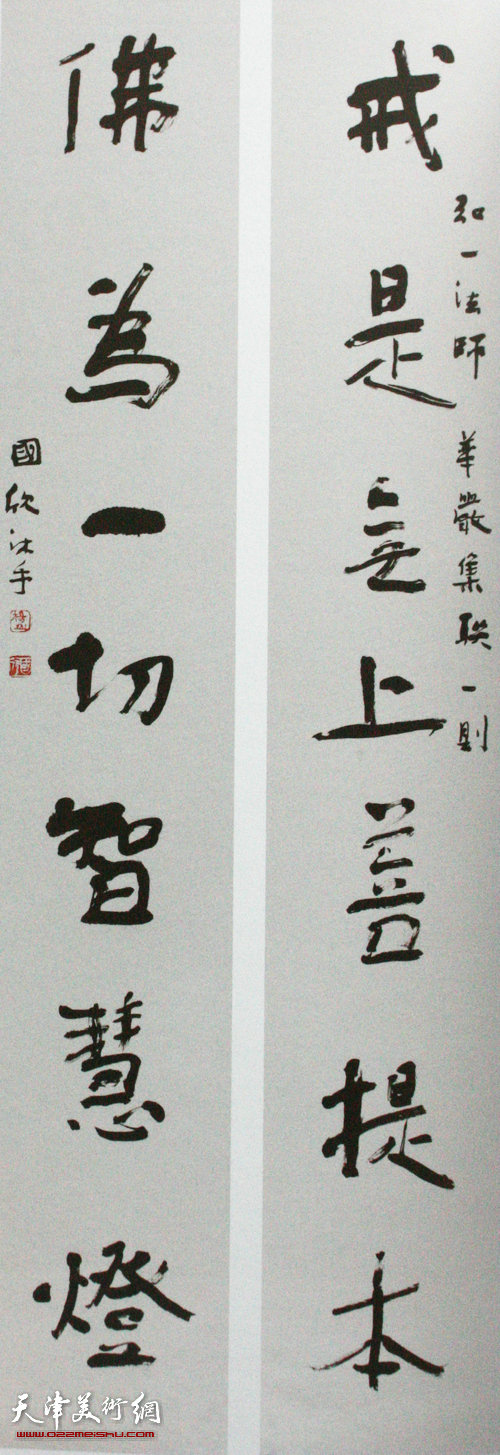 戒是無上菩提本
弘一法師 華嚴集聯一則
佛為一切智慧燈
國欣沐手
天津美術網
www.022meishu.com